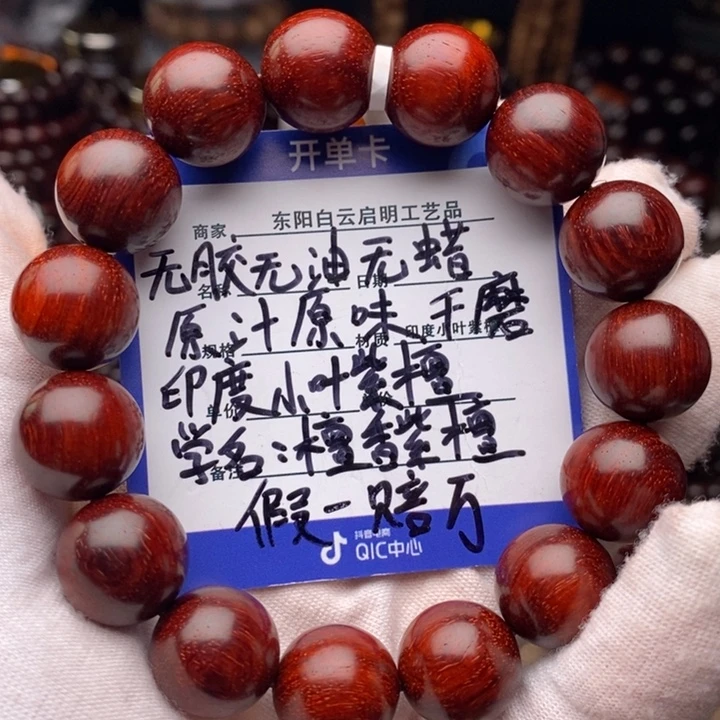 开单卡
商家 东阳白云启明工艺品
无胶无油无蜡
名称 日期
原汁原味 手磨
规格 材质 印度小叶紫檀
印度小叶紫檀
单价
学名:檀香紫檀
备注
假一赔万
抖音电商
QIC中心